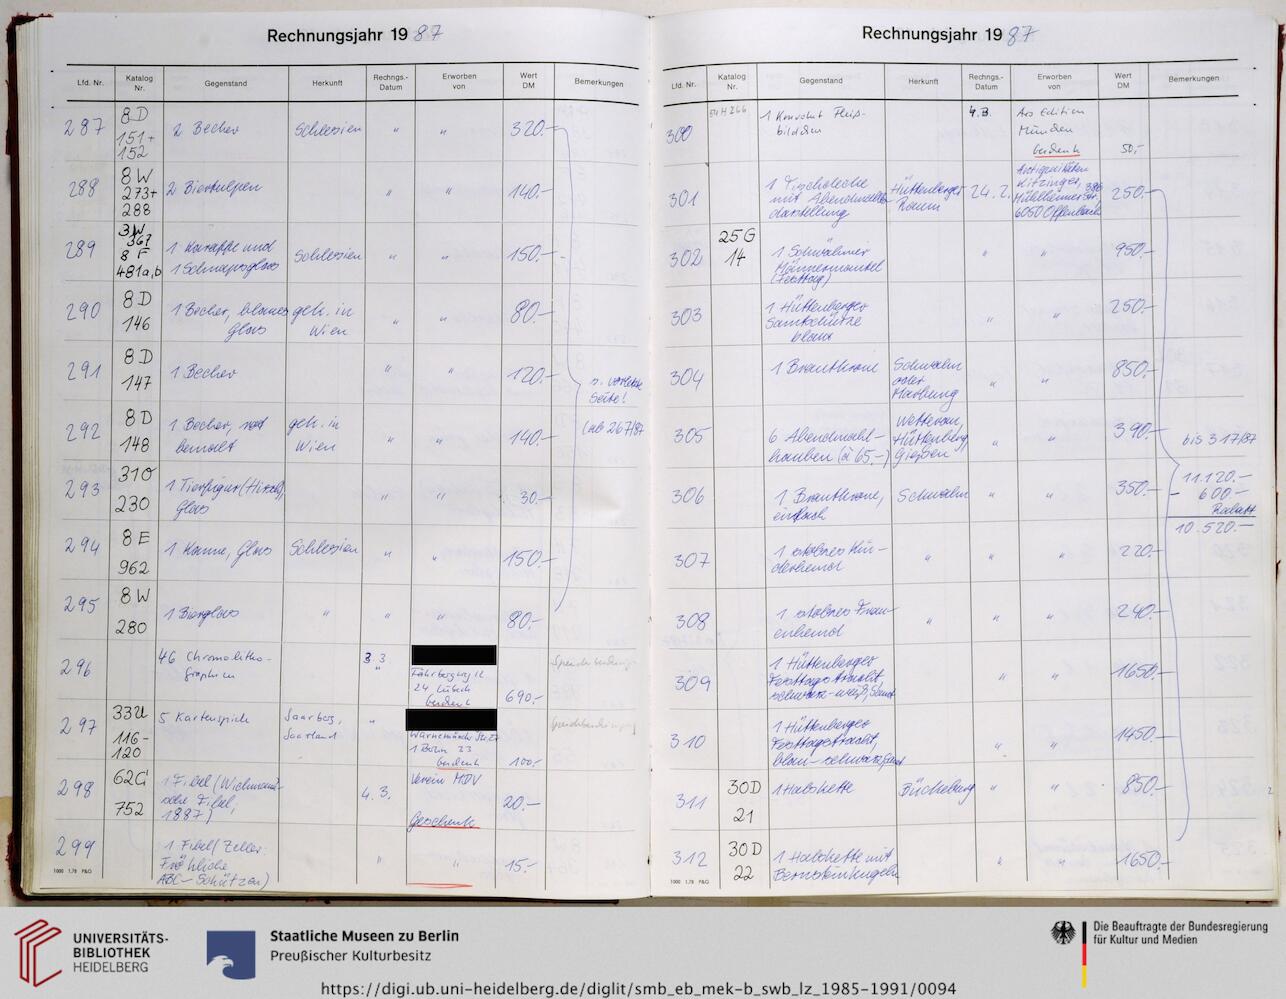 Rechnungsjahr 19 87
Lfd. Nr. Katalog Nr. Gegenstand Herkunft Rechngs.-Datum Erworben von Wert DM Bemerkungen
287 8 D 151 + 152 2 Becher Schlesien " " 320.-
288 8 W 273+ 288 2 Biertulpen " " 140.-
289 3W 367 8 F 481a,b 1 Karaffe und 1 Schnapsglas Schlesien " " 150.-
290 8 D 146 1 Becher, blaues Glas gek. in Wien " " 80.-
291 8 D 147 1 Becher " " 120.-
s. vorletzte
Seite!
(ab 267/87
292 8 D 148 1 Becher, rot bemalt gek. in Wien " " 140.-
293 31O 230 1 Tierfigur (Hirsch), Glas " " 30.-
294 8 E 962 1 Kanne, Glas Schlesien " " 150.-
295 8 W 280 1 Bierglas " " " 80.-
296 46 Chromolitho-
graphien 3.3. 24 Lübeck 690.-
297 33U 116-120 5 Kartenspiele Saarbg., Saarland " 1 Berlin 23 100.-
298 62G 752 1 Fibel (Wichmann-
sche Fibel,
1887) 4.3. Verein MDV
Geschenk 20.-
299 1 Fibel (Zeller.
Fröhliche
ABC-Schützen) " " 15.-
1000 1.78 P&G
Rechnungsjahr 19 87
Lfd. Nr. Katalog Nr. Gegenstand Herkunft Rechngs.-Datum Erworben von Wert DM Bemerkungen
300 54 H 266 1 Konvolut Fleiß-
bildchen 4.3. Ars Edition
München 50,-
301 1 Tischdecke
mit Abendmahls-
darstellung Hüttenberger
Raum 24.2. Antiquitäten
Kitzinger,
6050 Offenbach 250.-
302 25 G 14 1 Schwälmer
Männermantel
(Festtag) " 950.-
303 1 Hüttenberger
Samtschürze
blau " " 250.-
304 1 Brautkrone Schwalm
oder
Marburg " " 850.-
305 6 Abendmahl-
hauben (à 65.-) Wetterau,
Hüttenberg,
Gießen " " 390.-
bis 317/87
306 1 Brautkrone,
einfach Schwalm " " 350.-
11.120.-
- 600.-
Rabatt
10.520.-
307 1 Kin-
derhemd " " " 220.-
308 1 Frau-
enhemd " " " 240.-
309 1 Hüttenberger
Festtagstracht,
schwarz-weiß, Samt " " 1650.-
310 1 Hüttenberger
Festtagstracht,
blau-schwarz, Samt " " 1450.-
311 30D 21 1 Halskette Bückeburg " " 850.-
312 30D 22 1 Halskette mit
Bernsteinkugeln " " 1650.-
1000 1.78 P&G
UNIVERSITÄTS-
BIBLIOTHEK
HEIDELBERG
Staatliche Museen zu Berlin
Preußischer Kulturbesitz
Die Beauftragte der Bundesregierung
für Kultur und Medien
https://digi.ub.uni-heidelberg.de/diglit/smb_eb_mek-b_swb_lz_1985-1991/0094